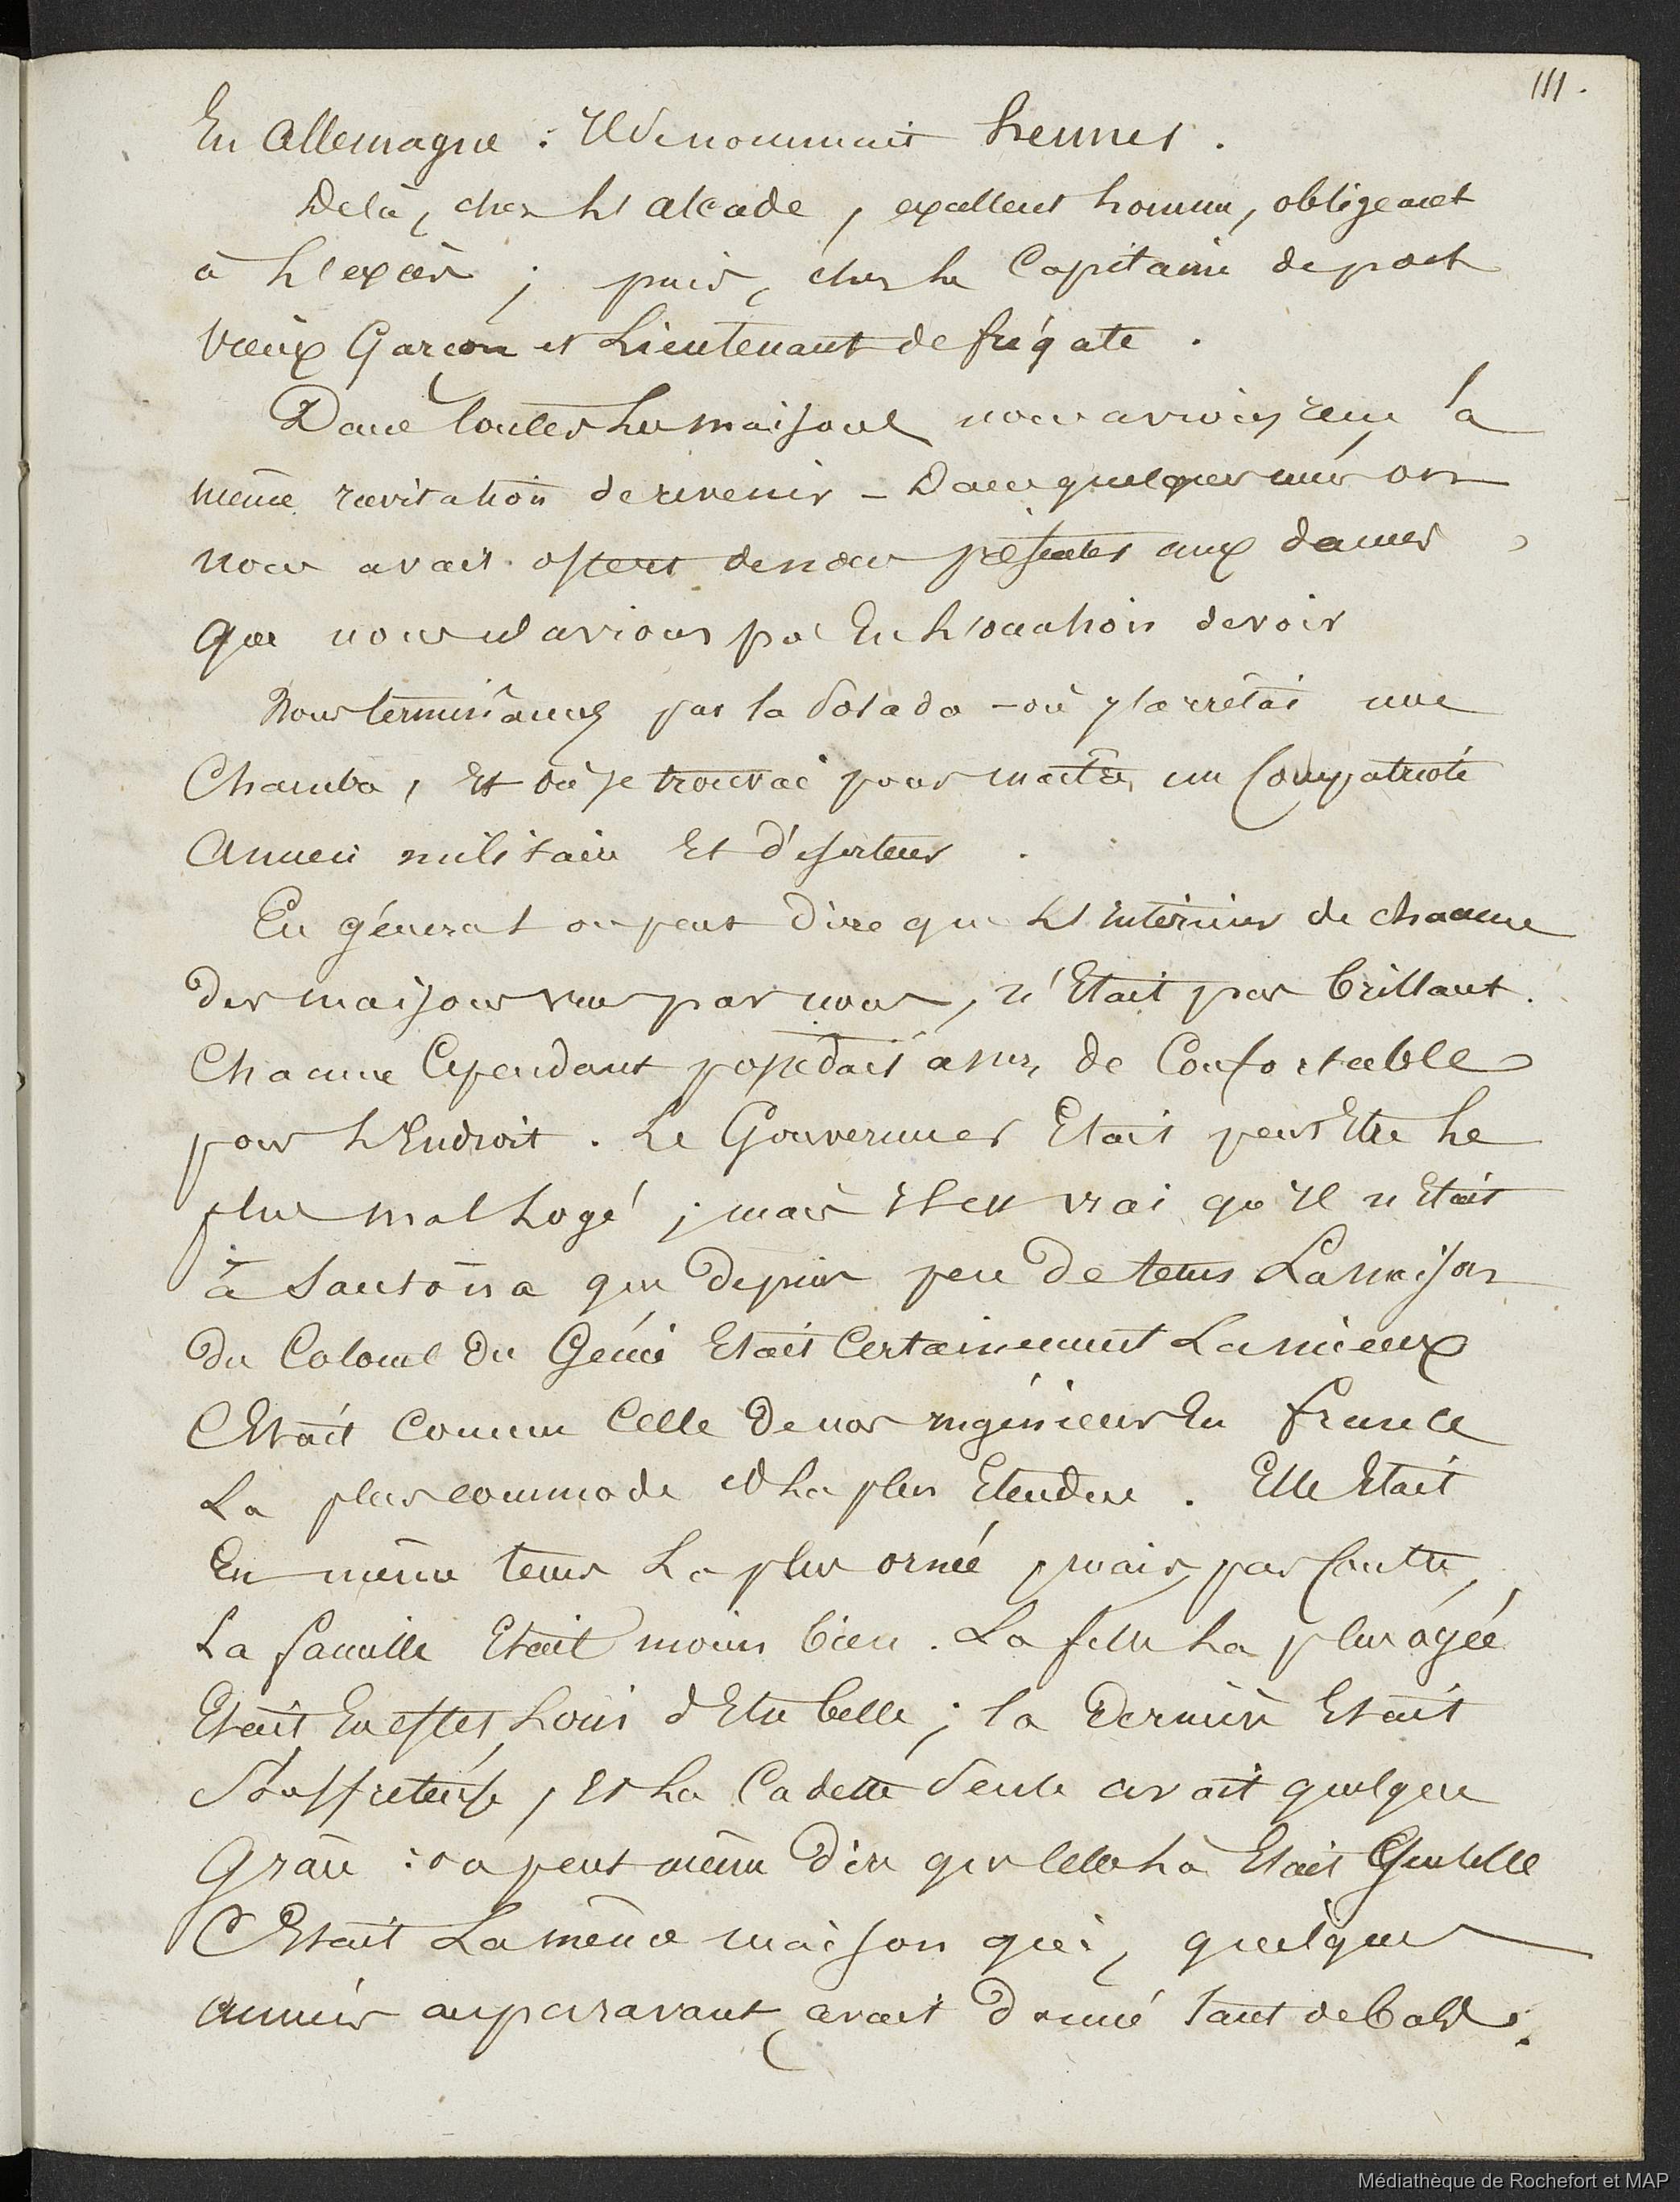 111.
En Allemagne : Il se nommait hennes.
Delà, chez l'alcade, excellent homme, obligeant
à l'excès ; puis, chez le Capitaine de port
vieux Garçon et Lieutenant de frégate.
Dans toutes les maisons nous avions reçu la
même invitation de revenir - Dans quelques unes on
nous avait offert de nous présenter aux dames,
que nous n'avions pas Eu l'occasion de voir
Nous terminâmes par la Posada - où j'arrêtai une
Chambre, Et où je trouvai pour maître, un Compatriote
Ancien militaire Et déserteur.
En général on peut dire que l'intérieur de chacune
des maisons vues par nous, n'Etait pas brillant.
Chacune Cependant possédait assez de Confortable
pour l'Endroit. Le Gouverneur Etait peut Etre le
plus mal Logé ; mais il est vrai qu'il n'Etait
à Santona que Depuis peu de tems La maison
du Colonel du Génie Etait Certainement La mieux
C'Etait comme Celle de nos ingénieurs En france
La plus commode et La plus Etendue. Elle Etait
En même tems La plus ornée, mais, par Contre,
La famille Etait moins bien. La fille La plus âgée
Etait En effet, Loin d'Etre belle ; la Dernière Etait
Souffreteuse, Et La Cadette Seule avait quelque
Grâce : on peut même dire que Celle là Etait Gentille
C'Etait La même maison qui, quelques
années auparavant, avait donné tant de bals.
Médiathèque de Rochefort et MAP